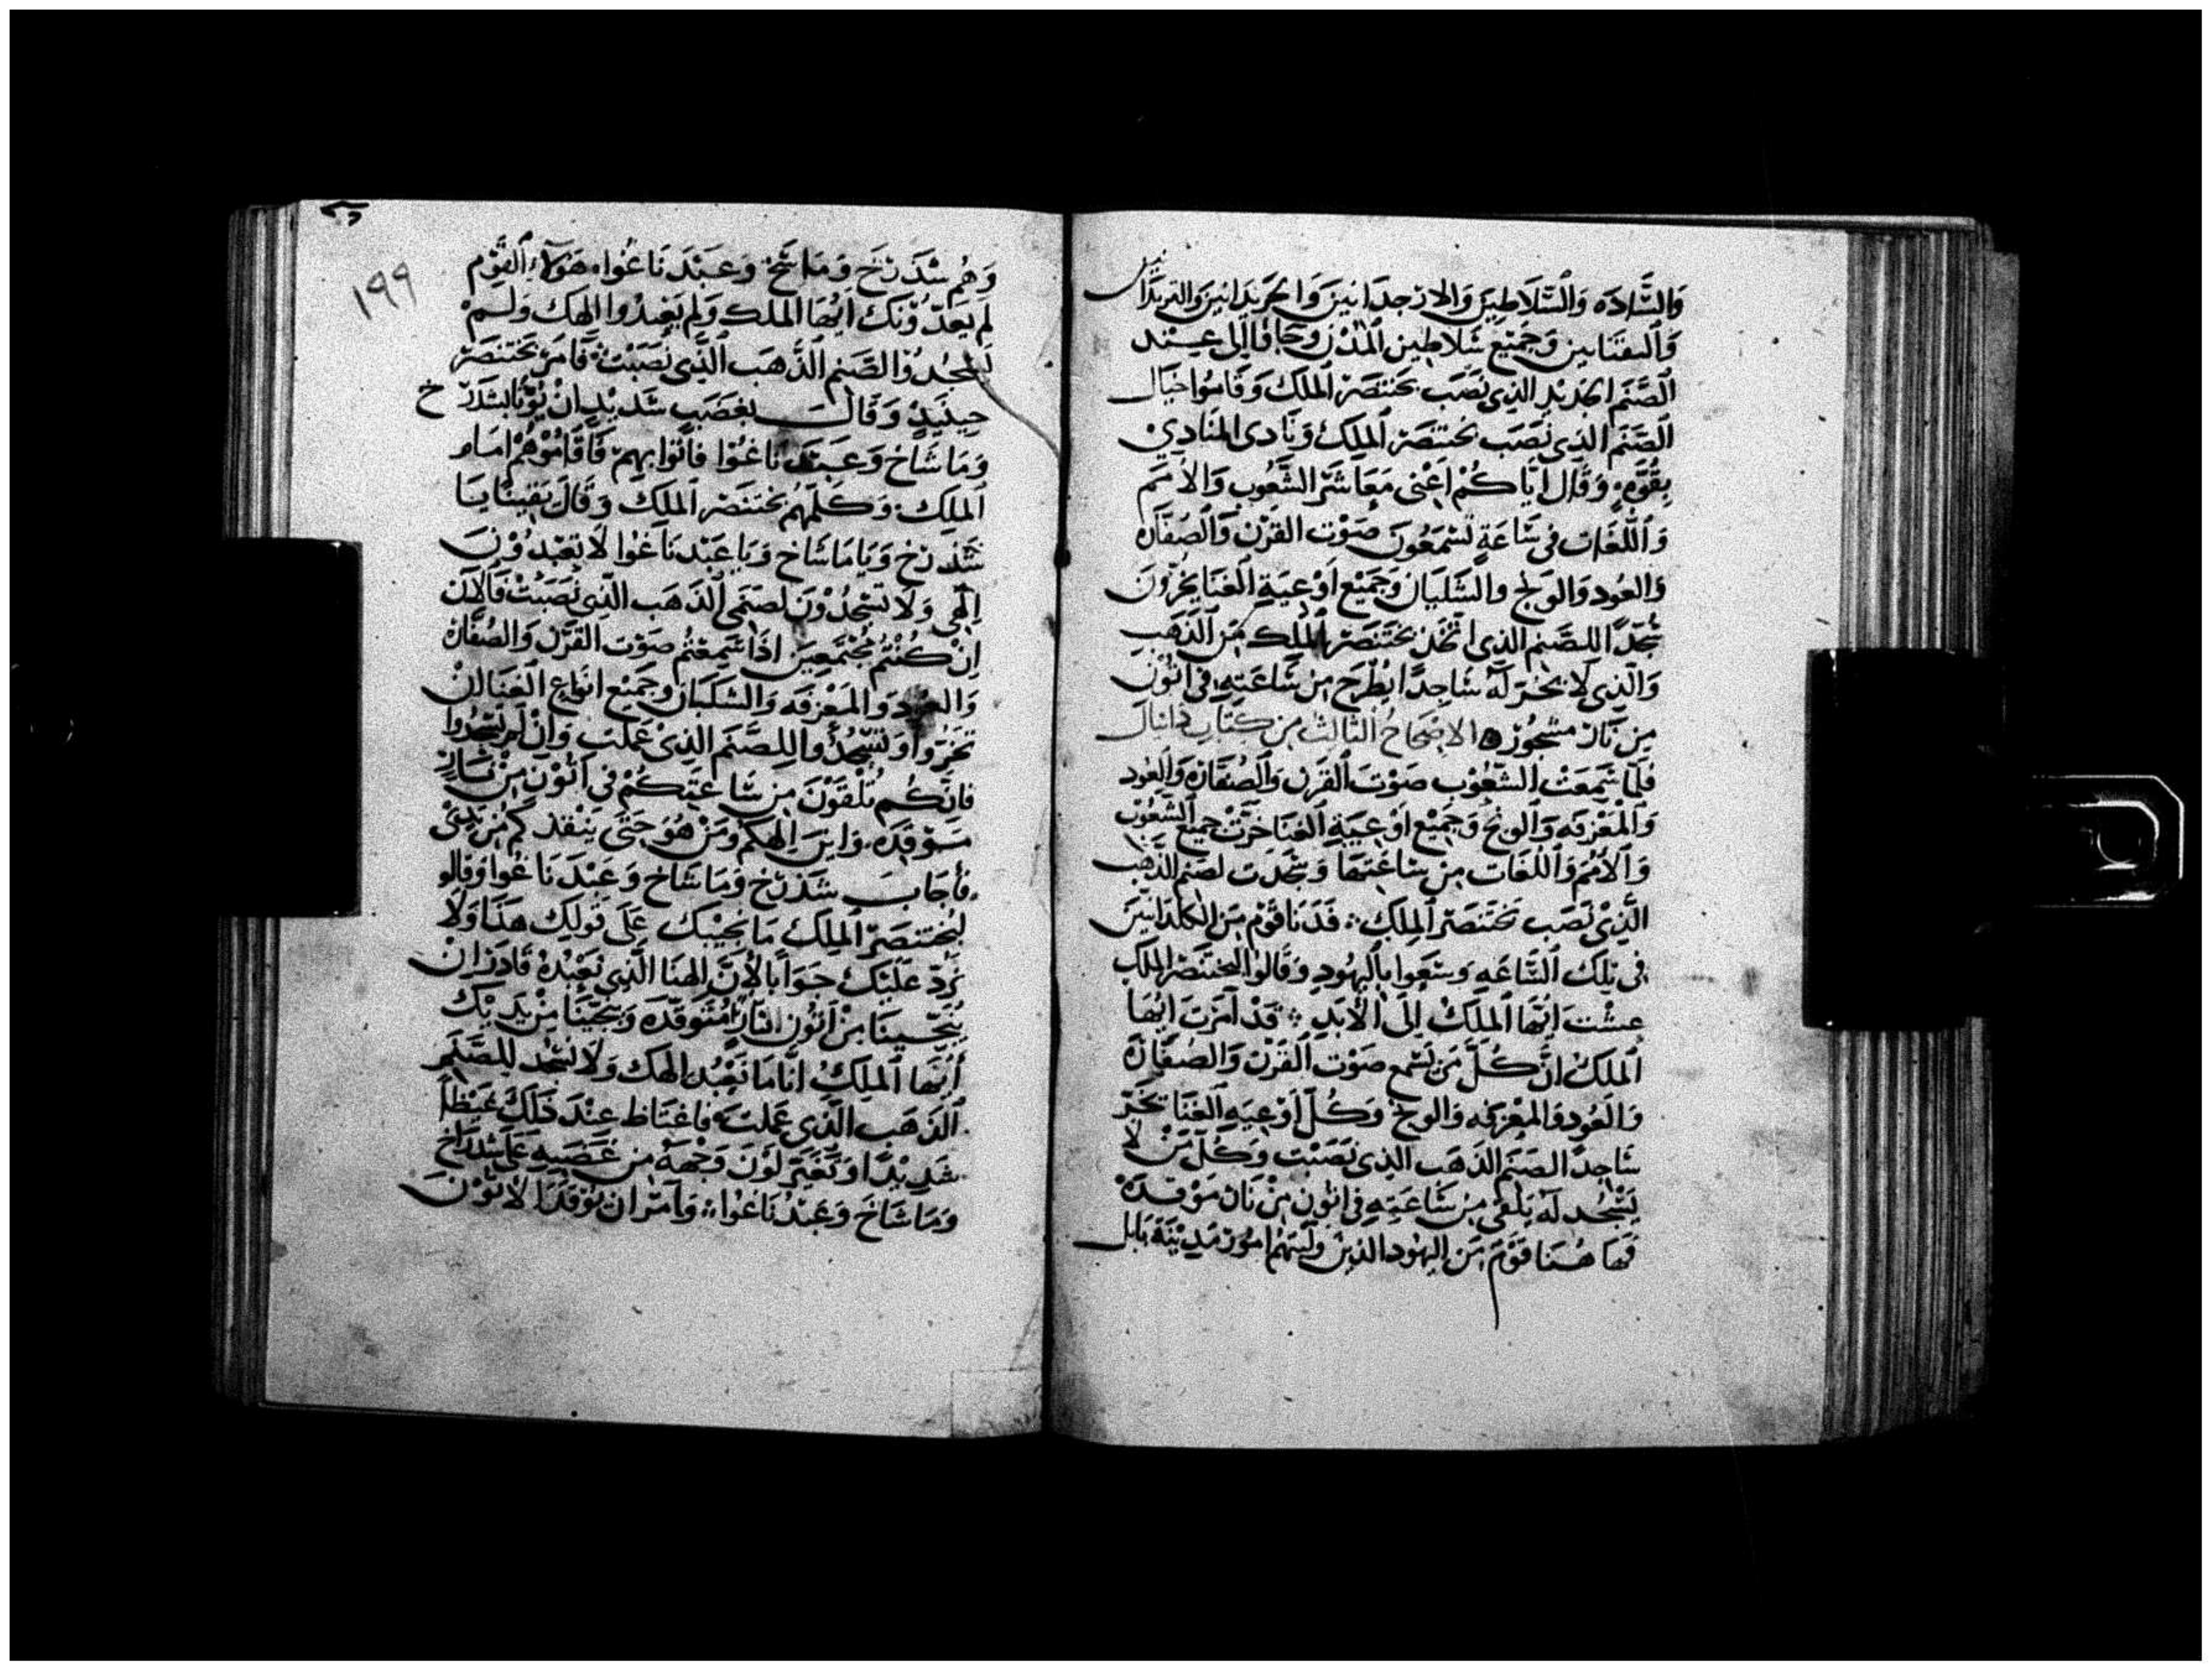 والسَّاده وَالسَّلاطِينَ وَالارْجدَانينَ وَالجربدَانين وَالتربدَا
وَجَميْع سَلاطين المُدْن وجَاوُا اِلى عِنْد
الصَّنَم الذِى نَصَبَ بختنَصَر المَلك وَقَامُوا حيَال
الصَّنَم الذِى نصَب بختنصَر المَلِك وَنَادى المنَادِيْ
بقُوّهٍ وَقَال ايّاكُمْ اعْنى مَعَاشرَ الشّعُوب وَالامَم
وَاللّغَات فى سَّاعَةٍ تَسْمَعُونَ صَوْت القَرْن وَالصُفَّارَه
وَالعُود وَالوَنج والسَّلبَان وَجَميْع اوْعيَةِ الغنَا بخرّونَ
سُجّدًا للصَّنم الذى اتّخذ بختنصَر المَلك مِنَ الذهَبِ
وَالّذِى لا يخرّ لَهُ سَاجِدًا يُطْرَح مِن سَاعَتهِ فى اتُّون
مِن نَار مسْجُورْه الاصْحَاحُ الثالث مِن كتَاب دانيال
فلَمّا سَمِعَتْ الشعُوب صَوْت القَرن وَالصُفّارَه وَالعُود
وَالمعْزفَه وَالونج وَجَميْع اوْعيَةِ الغنَا خرّتْ جميع الشعُوْب
وَالامُم وَاللّغَات مِن سَاعَتهَا وَسَجَدَت لصَنم الذّهَب
الّذِىْ نَصَب بختنَصَر المِلك ، فَدَنَا قوْم مِن الكلدَانيّن
فى تِلك السّاعَهِ وَسَعَوا باليهُودِ وَقالوا لبختنصَر المَلك
عِشْتَ ايّهَا المَلكْ اِلَى الابَدِ ، قَدْ امَرْتَ ايُّهَا
المَلكْ انّ كُلّ مَن يَسْمع صَوْت القَرْن وَالصُفّارَه
وَالعُود وَالمعْزفه وَالونج وَكُلّ اوْعِيَهِ الغِنَا يَخرّ
سَاجدًا الصَنم الذَهَب الذِى نَصَبْت وَكُل مَنْ لا
يَسْجُد لَهُ يلقَى مِن سَاعَتِهِ فى اتون مِنْ نَار مَوْقدَهْ
فَهَا هُنَا قوْمٌ مِن اليهُود الذينْ وَلّيتهُم امُورْ مَدِيْنَة بَابل
١٩٩
وَهُم شدَرَخ وَمَاشَخْ وَعَبْدَ نَاغُوا هَوُلاءِ القَوْم
لم يعدّوْنك ايّهَا المَلك وَلم يَعْبدُوا الهَك وَلَمْ
يَسْجُدُوْا لصَّنم الذّهَب الّذِى نَصَبْت فامَر بختنصَر
حِينَيذٍ وَقَال بغضَب شدِيْدٍ ان يُوْتَا بشدَرَخ
وَمَاشَاخ وَعَبد نَاغُوْا فأتوا بهِمْ فَاقَامُوْهُمْ امَام
المَلِك وَكلّمَهُم بختنصَر المَلك وَقَالَ يَقيْنًا يَا
شدرَخ وَيَا مَاشَاخ وَيَا عَبْد نَاغُوا لا تعْبدُوْنَ
الَهى وَلا تسْجُدُوْنَ لصَنَمى الذهَب الّذِى نَصَبْتُ فَالان
اِنْ كُنْتُم مُجْتَمعِيَن اذَا سَمِعْتُم صَوْت القَرْن وَالصُفّارَه
وَالعُود وَالمَعْزفَه وَالسَّلبَان وَجَميْع انوَاع الغنَا ان
تخرّوا وَتسْجُدُوا للصَّنَم الذِىْ عَمِلت وَانْ لم تسْجُدُوا
فاِنّكُم تُلْقَوْنَ مِن سَّاعَتِكُمْ فى اتُّوْن مِنْ نَارٍ
مَوْقدَه، وَاينَ اِلهكُمْ وَمَنْ هُوَ حَتَى يَنْقذكُم مِن يَدِىْ
فأجَابَ شَدْرَخ وَمَاشَاخ وَعَبْدَ نَاغُوا وَقَالو
لبُختنصَر المَلِك مَا نُجيْبك عَلَى قولك هَذَا وَلا
نَرُدّ عَلَيْك جَوَابًا لانّ الهنَا الّذِى نَعْبُدُهْ قَادرْ ان
يُنجّينَا مِنْ اتُّون النارِ المُتوقّدَه وَينجّيَنا مِنْ يَدَيْك
ايّهَا المَلِكُ انّا مَا نَعْبُد الهك وَلا نَسْجُد للصَّنَم
الذهَب الّذى عَملت فاغتَاظ عِنْدَ ذَلكَ غَيْظًا
شَدِيْدًا وَتَغيَّر لوْنَ وَجْههُ مِن غَضَبِهِ عَلى شدرَاخ
وَمَاشَاخ وَعَبْد نَاغُوا ، وَامَر ان توْقدَ الاتُوْنَ